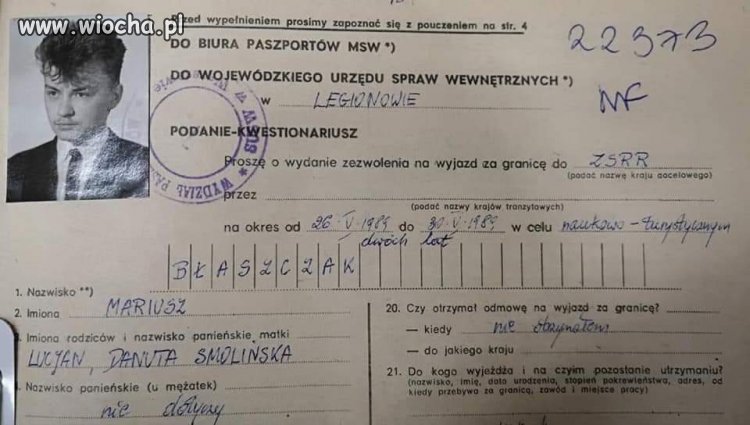 www.wiocha.pl
Przed wypełnieniem prosimy zapoznać się z pouczeniem na str. 4
DO BIURA PASZPORTÓW MSW *)
22373
DO WOJEWÓDZKIEGO URZĘDU SPRAW WEWNĘTRZNYCH *)
w LEGIONOWIE
PODANIE-KWESTIONARIUSZ
WYDZIAŁ PA
Proszę o wydanie zezwolenia na wyjazd za granicę do ZSRR
(podać nazwę kraju docelowego)
przez
(podać nazwy krajów tranzytowych)
na okres od 26 V 1989 do 30 V 1989 w celu naukowo-turystycznym
dwóch lat
BŁASZCZAK
1. Nazwisko **)
2. Imiona MARIUSZ
Imiona rodziców i nazwisko panieńskie matki
LUCJAN, DANUTA SMOLIŃSKA
Nazwisko panieńskie (u mężatek)
nie dotyczy
20. Czy otrzymał odmowę na wyjazd za granicę?
— kiedy nie otrzymałem
— do jakiego kraju
21. Do kogo wyjeżdża i na czyim pozostanie utrzymaniu?
(nazwisko, imię, data urodzenia, stopień pokrewieństwa, adres, od
kiedy przebywa za granicą, zawód i miejsce pracy)